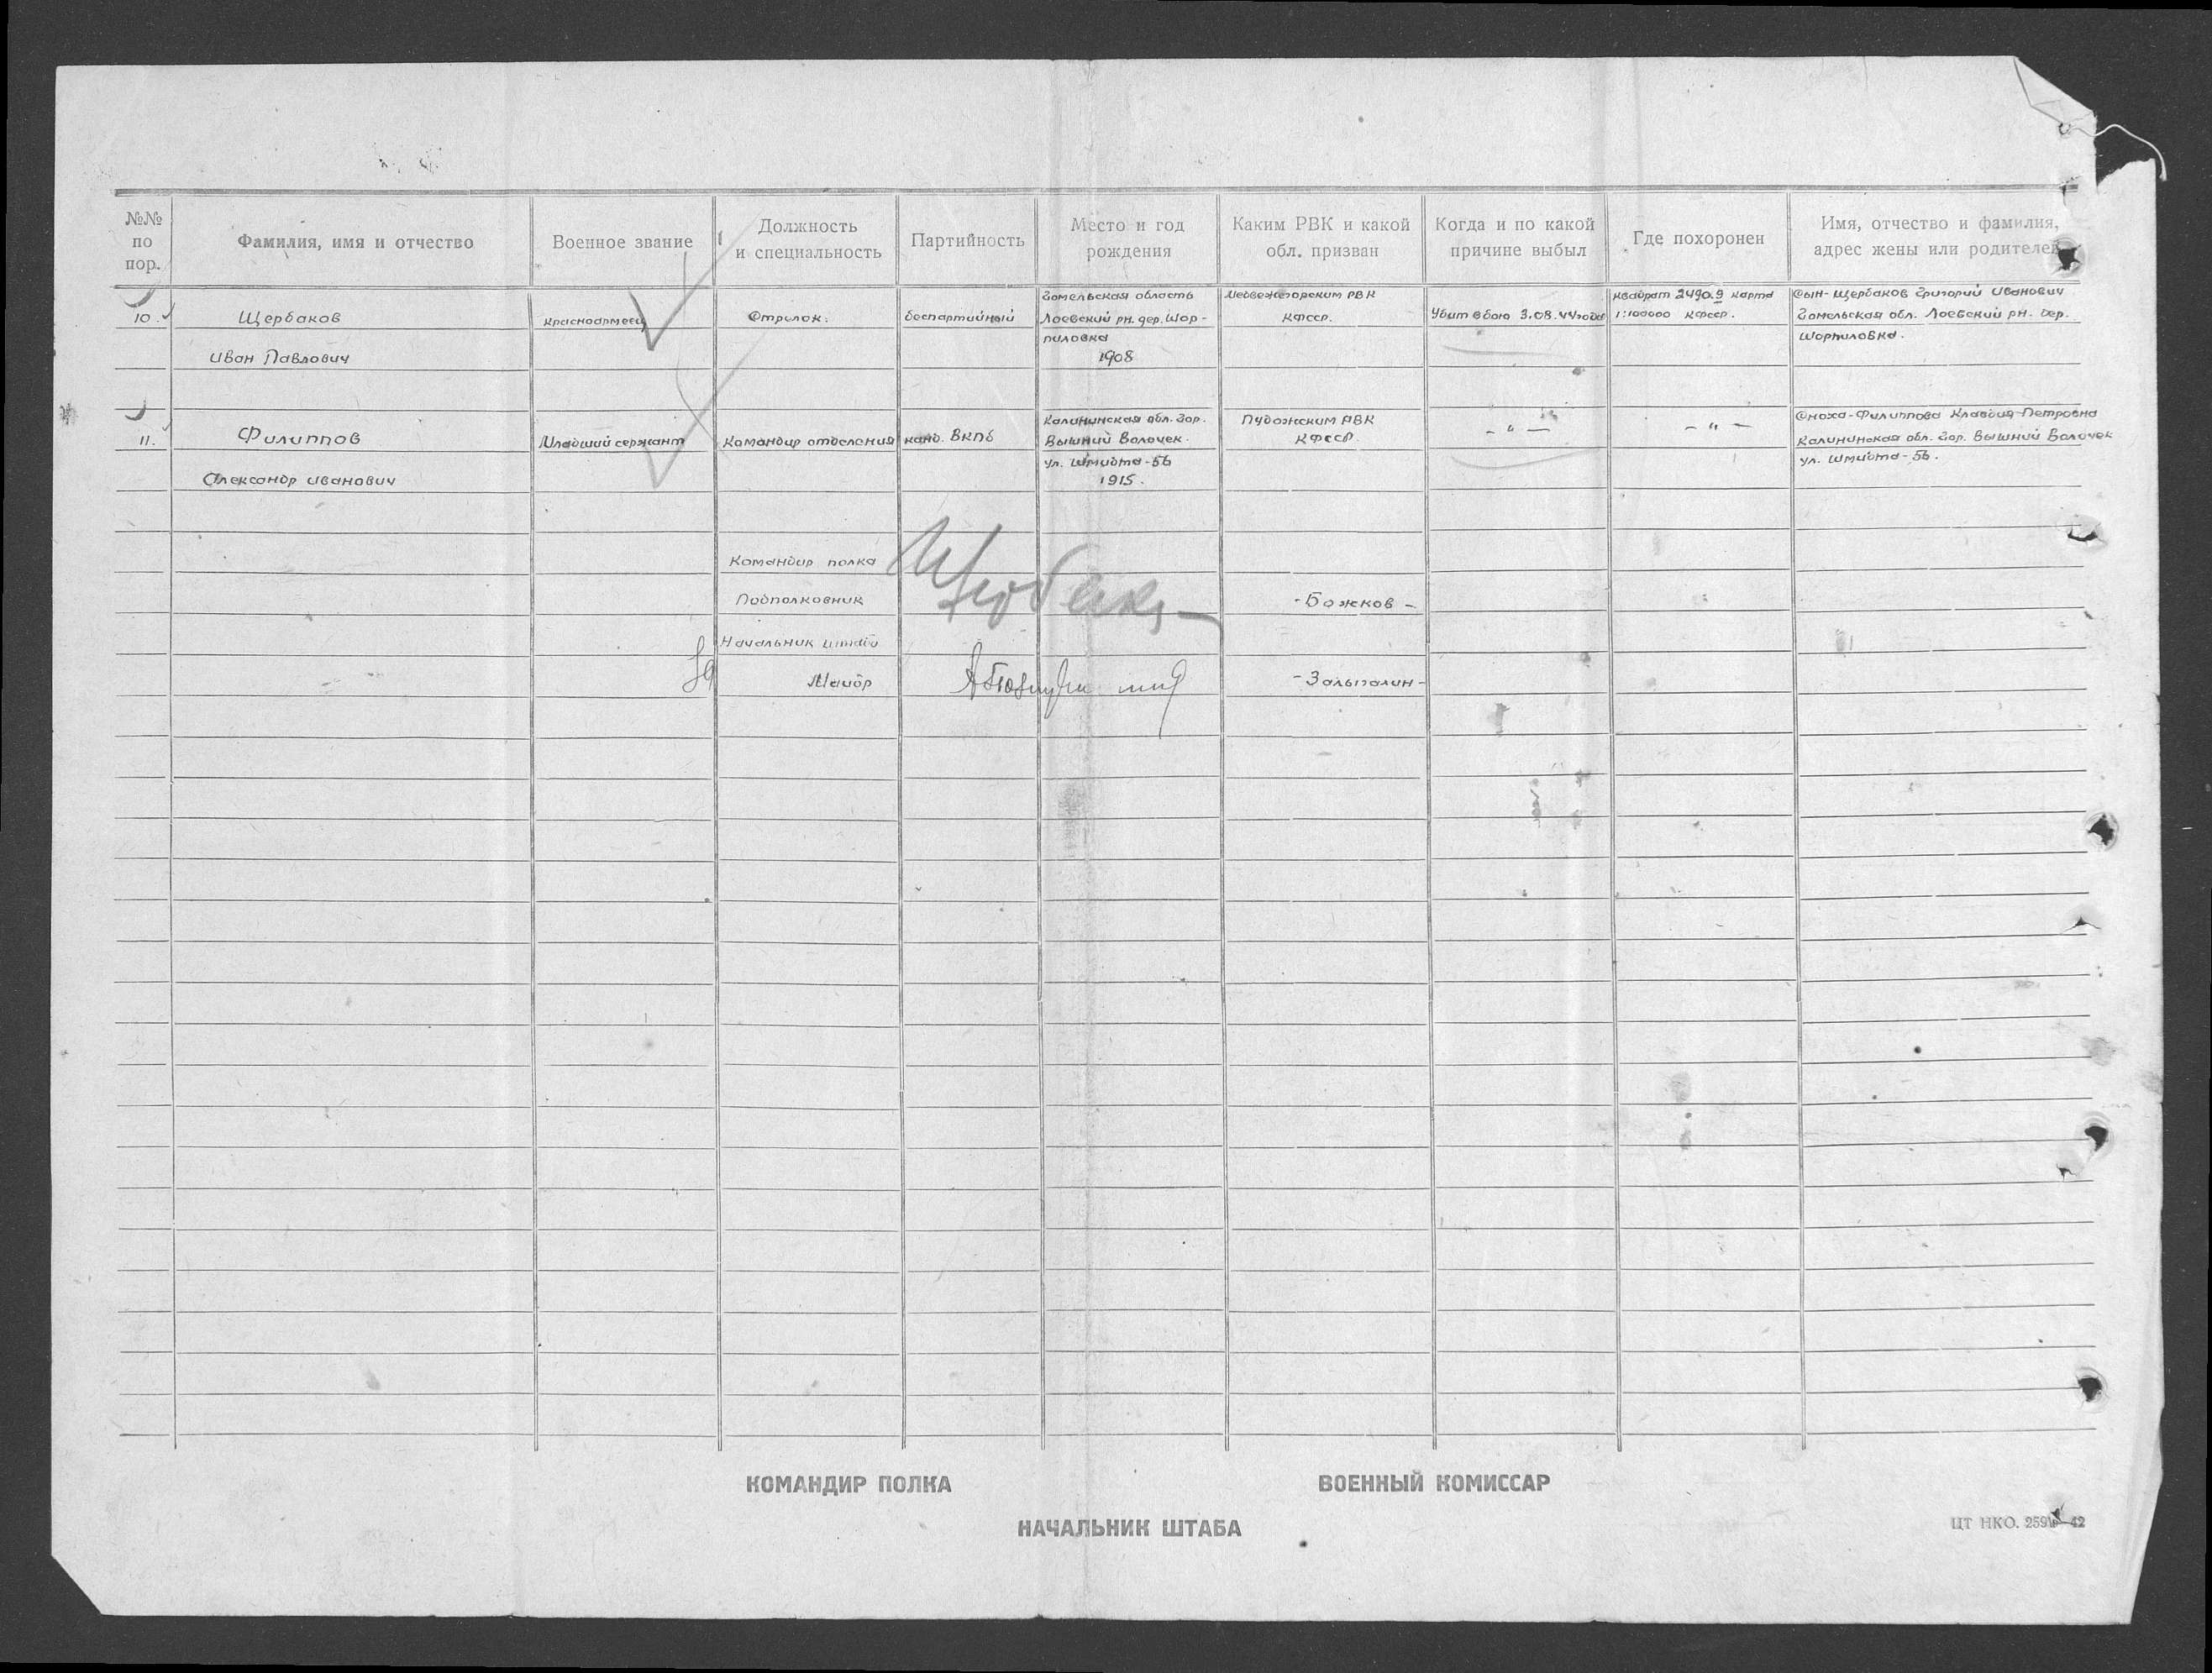 №№ по пор.
Фамилия, имя и отчество
Военное звание
Должность и специальность
Партийность
Место и год рождения
Каким РВК и какой обл. призван
Когда и по какой причине выбыл
Где похоронен
Имя, отчество и фамилия, адрес жены или родителей
10.
Щербаков
Иван Павлович
Красноармеец
Стрелок.
беспартийный
Гомельская область
Лоевский рн. дер. Шор-
пиловка
1908
Медвежегорским РВК
КФССР.
Убит в бою 3.08.44года
Квадрат 2490.9 карта
1:100000 КФССР.
Сын-Щербаков Григорий Иванович
Гомельская обл. Лоевский рн. дер.
Шорпиловка.
11.
Филиппов
Александр Иванович
Младший сержант
Командир отделения
канд. ВКПб
Калининская обл. гор.
Вышний Волочек.
ул. Шмидта-56
1915.
Пудожским РВК
КФССР.
- " -
- " -
Сноха-Филиппова Клавдия Петровна
Калининская обл. гор. Вышний Волочек
ул. Шмидта-56.
Командир полка
Подполковник
-Божков-
Начальник штаба
Майор
-Зальпалин-
КОМАНДИР ПОЛКА
ВОЕННЫЙ КОМИССАР
НАЧАЛЬНИК ШТАБА
ЦТ НКО.